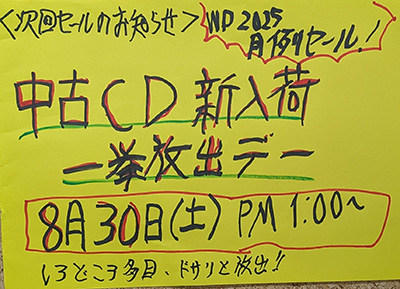 <次回セールのお知らせ>
WP 2025
月例セール!
中古CD新入荷
一挙放出デー
8月30日(土) PM 1:00〜
しろどころ多目、ドサリと放出!!